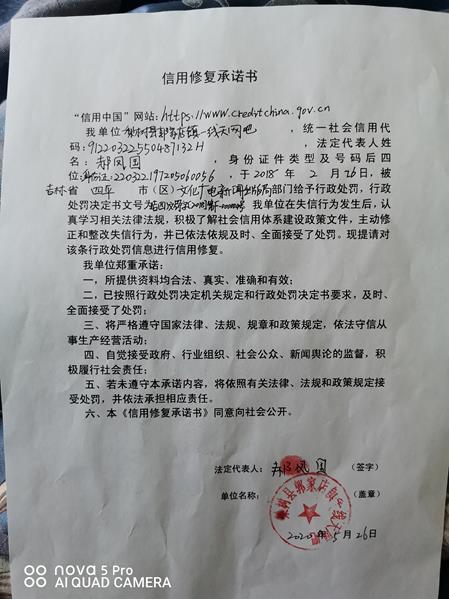 信用修复承诺书
“信用中国”网站:https://www.credytchina.gov.cn
我单位 梨树县郭家店镇一线天网吧 ,统一社会信用代
码: ,法定代表人姓
名: 郝凤国 ,身份证件类型及号码后四
位: 身份证:220322197205060056 ,于2018年2月26日,被
吉林省 四平 市(区) 部门给予行政处罚,行政
处罚决定书文号为 我单位在失信行为发生后,认
真学习相关法律法规,积极了解社会信用体系建设政策文件,主动修
正和整改失信行为,并已依法依规及时、全面接受了处罚。现提请对
该条行政处罚信息进行信用修复。
我单位郑重承诺:
一,所提供资料均合法、真实、准确和有效;
二,已按照行政处罚决定机关规定和行政处罚决定书要求,及时、
全面接受了处罚;
三、将严格遵守国家法律、法规、规章和政策规定,依法守信从
事生产经营活动;
四、自觉接受政府、行业组织、社会公众、新闻舆论的监督,积
极履行社会责任;
五、若未遵守本承诺内容,将依照有关法律、法规和政策规定接
受处罚,并依法承担相应责任。
六、本《信用修复承诺书》同意向社会公开。
法定代表人: 郝凤国 (签字)
单位名称: (盖章)
梨树县郭家店镇一线天网吧
2020年5月26日
nova 5 Pro
AI QUAD CAMERA